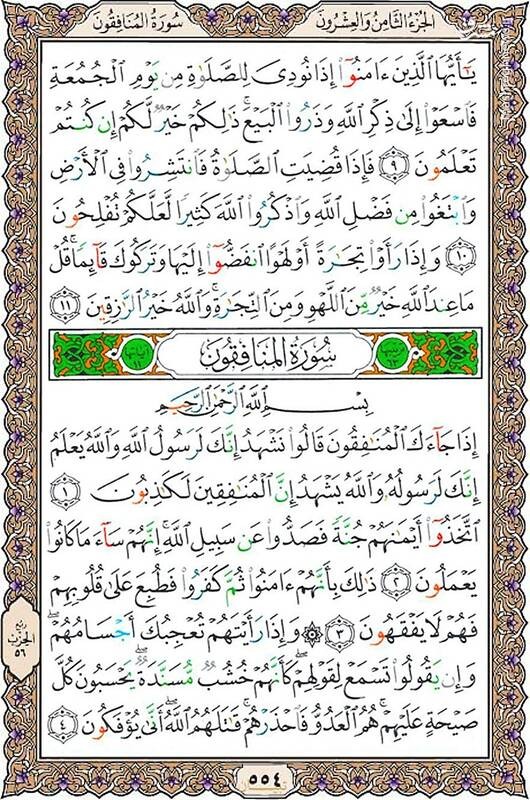 الجُزْءُ الثَّامِنُ وَالعِشْرُونَ
سُورَةُ المُنَافِقُونَ
يَٰٓأَيُّهَا ٱلَّذِينَ ءَامَنُوٓا۟ إِذَا نُودِىَ لِلصَّلَوٰةِ مِن يَوْمِ ٱلْجُمُعَةِ
فَٱسْعَوْا۟ إِلَىٰ ذِكْرِ ٱللَّهِ وَذَرُوا۟ ٱلْبَيْعَ ۚ ذَٰلِكُمْ خَيْرٌ لَّكُمْ إِن كُنتُمْ
تَعْلَمُونَ ٩ فَإِذَا قُضِيَتِ ٱلصَّلَوٰةُ فَٱنتَشِرُوا۟ فِى ٱلْأَرْضِ
وَٱبْتَغُوا۟ مِن فَضْلِ ٱللَّهِ وَٱذْكُرُوا۟ ٱللَّهَ كَثِيرًا لَّعَلَّكُمْ تُفْلِحُونَ
١٠ وَإِذَا رَأَوْا۟ تِجَٰرَةً أَوْ لَهْوًا ٱنفَضُّوٓا۟ إِلَيْهَا وَتَرَكُوكَ قَآئِمًا ۚ قُلْ
مَا عِندَ ٱللَّهِ خَيْرٌ مِّنَ ٱللَّهْوِ وَمِنَ ٱلتِّجَٰرَةِ ۚ وَٱللَّهُ خَيْرُ ٱلرَّٰزِقِينَ ١١
سُورَةُ المُنَافِقُونَ
آيَاتُهَا ١١
بِسْمِ ٱللَّهِ ٱلرَّحْمَٰنِ ٱلرَّحِيمِ
إِذَا جَآءَكَ ٱلْمُنَٰفِقُونَ قَالُوا۟ نَشْهَدُ إِنَّكَ لَرَسُولُ ٱللَّهِ ۗ وَٱللَّهُ يَعْلَمُ
إِنَّكَ لَرَسُولُهُۥ وَٱللَّهُ يَشْهَدُ إِنَّ ٱلْمُنَٰفِقِينَ لَكَٰذِبُونَ ١
ٱتَّخَذُوٓا۟ أَيْمَٰنَهُمْ جُنَّةً فَصَدُّوا۟ عَن سَبِيلِ ٱللَّهِ ۚ إِنَّهُمْ سَآءَ مَا كَانُوا۟
يَعْمَلُونَ ٢ ذَٰلِكَ بِأَنَّهُمْ ءَامَنُوا۟ ثُمَّ كَفَرُوا۟ فَطُبِعَ عَلَىٰ قُلُوبِهِمْ
فَهُمْ لَا يَفْقَهُونَ ٣ ۞ وَإِذَا رَأَيْتَهُمْ تُعْجِبُكَ أَجْسَامُهُمْ ۖ
وَإِن يَقُولُوا۟ تَسْمَعْ لِقَوْلِهِمْ ۖ كَأَنَّهُمْ خُشُبٌ مُّسَنَّدَةٌ ۖ يَحْسَبُونَ كُلَّ
صَيْحَةٍ عَلَيْهِمْ ۚ هُمُ ٱلْعَدُوُّ فَٱحْذَرْهُمْ ۚ قَٰتَلَهُمُ ٱللَّهُ ۖ أَنَّىٰ يُؤْفَكُونَ ٤
ربع
الحزب
٥٦
٥٥٤